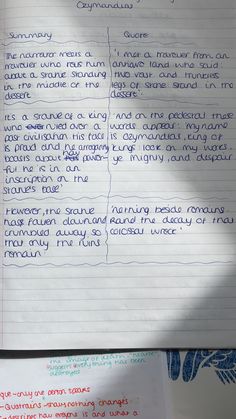 Ozymandias
Summary
The narrator meets a
traveller who tells him
about a statue standing
in the middle of the
dessert
It's a statue of a king
who ruled over a
past civilisation. His face
is proud and he arrogantly
boasts about how power-
ful he is in an
inscription on the
statue's base'
However, the statue
has fallen down and
crumbled away so
that only the ruins
remain'
Quote
'I met a traveller from an
antique land who said
two vast and trunkless
legs of stone stand in the
dessert'.
'And on the pedestal these
words appear: my name
is Ozymandias, king of
kings look on my works.
ye mighty, and despair
'nothing beside remains.
Round the decay of that
colossal wreck'
everything has been
destroyed
gue - only one person speaks
Quatrains - shows nothing changes
- describes how enrons is and what a